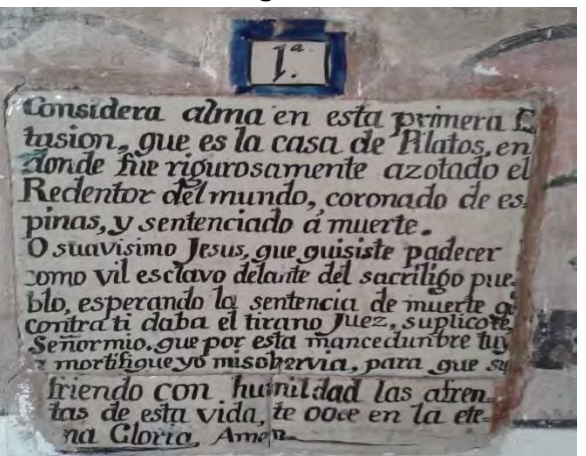 1.ª
Considera alma en esta primera E
tasion, que es la casa de Pilatos, en
donde fue rigurosamente azotado el
Redentor del mundo, coronado de es
pinas, y sentenciado á muerte.
O suavisimo Jesus, que quisiste padecer
como vil esclavo delante del sacriligo pue-
blo, esperando la sentencia de muerte q
contra ti daba el tirano Juez, suplicote,
Señor mio. que por esta mancedunbre tuy
mortifique yo misobervia, para que su
friendo con humildad las afren-
tas de esta vida, te ooce en la ete-
na Gloria, Amen.